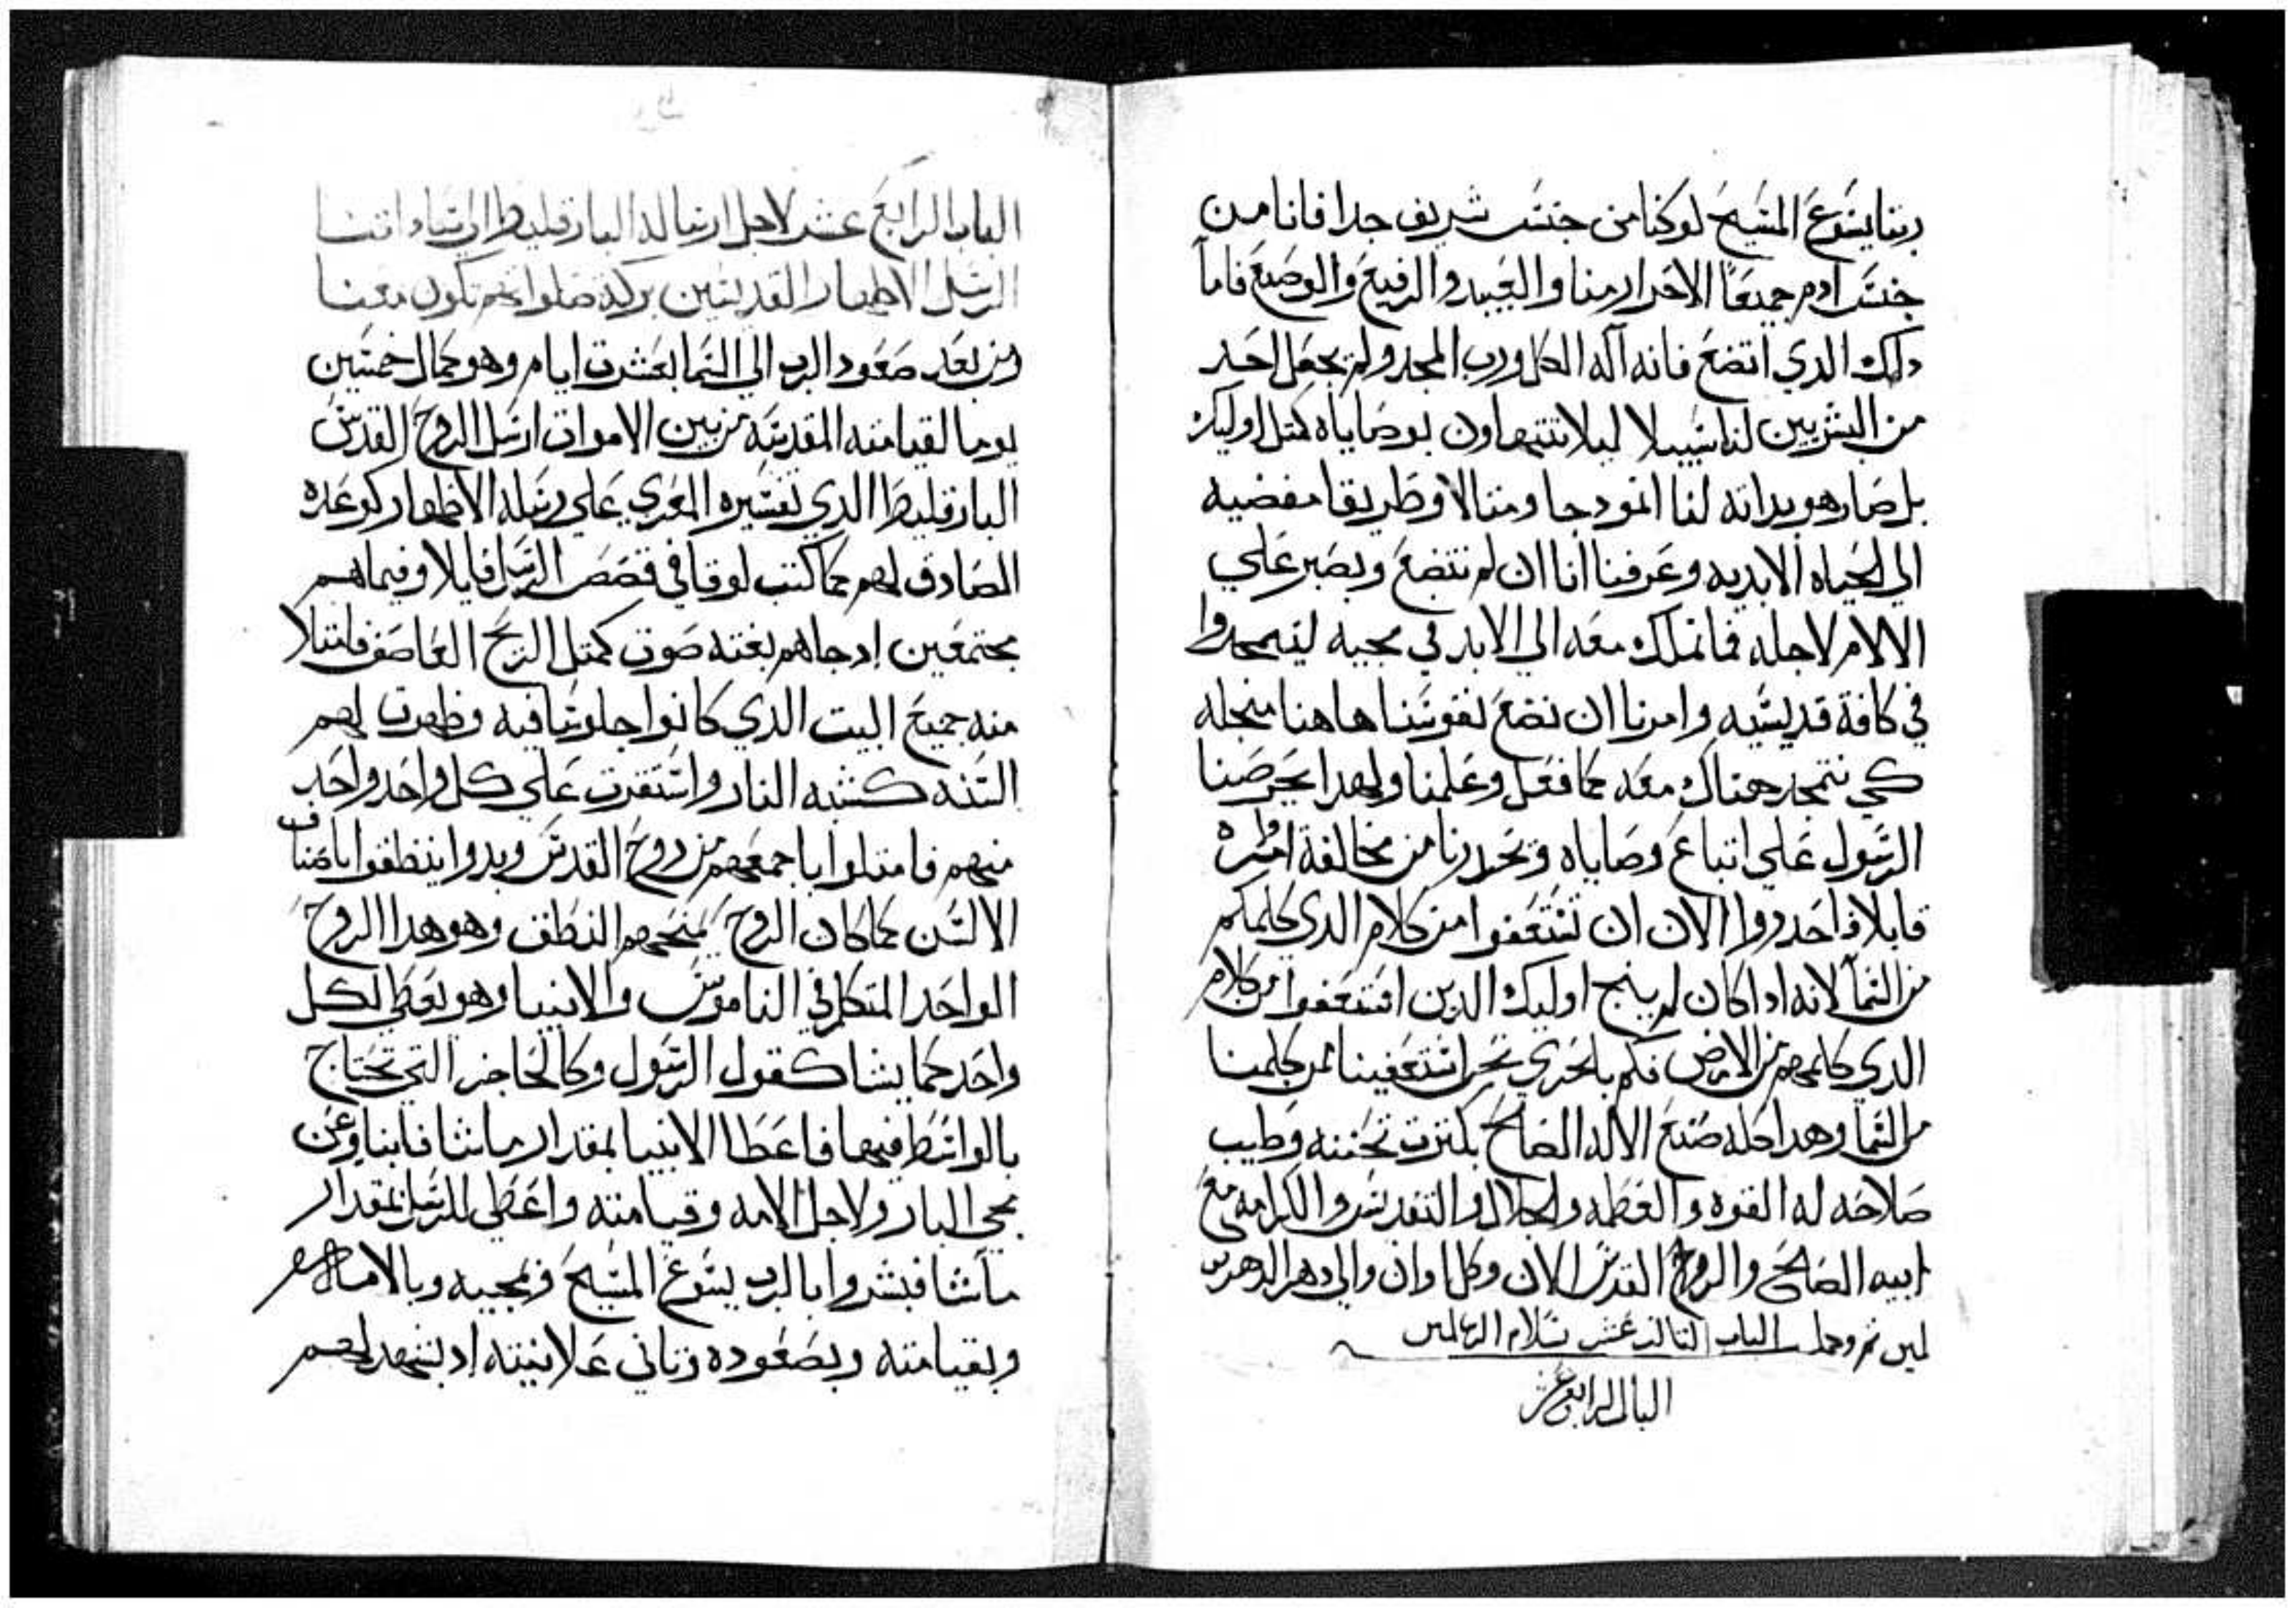 ربنا يسوع المسيح لو كنا من جنس شريف جدا فاننا من
جنس ادم جميعا الاحرار منا والعبيد والرفيع والوضيع فاما
دلك الدي اتضع فانه اله الكل ورب المجد ولم يجعل احد
من البشريين لنا سبيلا ليلا نتهاون بوصاياه كمتل اوليك
بل صار هو بداته لنا انمودجا ومتالا وطريقا مفضيه
الي الحياه الابديه وعرفنا اننا ان لم نتضع ونصبر علي
الالام لاجله فما نملك معه الي الابد في مجيه ليتمجدوا
في كافة قديسيه وامرنا ان نضع نفوسنا هاهنا منجله
كي نتمجد هناك معه كما فعل وعلمنا ولهدا يحرضنا
الرسول علي اتباع وصاياه وتحدرنا من مخالفة اوامره
قايلا فاحدروا الان ان تستعفوا من كلام الدي كلمكم
من السما لانه ادا كان لم ينج اوليك الدين استعفوا من كلام
الدي كلمهم من الارض فكم بالحري نحن استعفينا ممن كلمنا
من السما وهدا كله صنع الاله الصالح بكترت تحننه وطيب
صلاحه له القوه والعظمه والجلال والتقديس والكرامه مع
ابيه الصالح والروح القدس الان وكل اوان والي دهر الدهرين
امين تم وكمل الباب التالت عشر بسلام الرب امين
الباب الرابع عشر
الباب الرابع عشر لاجل ارساله البارقليط الي ساداتنا
الرسل الاطهار القديسين بركة صلواتهم تكون معنا
ومن بعد صعود الرب الي السما بعشرت ايام وهو كمال خمسين
يوما لقيامته المقدسه من بين الاموات ارسل الروح القدس
البارقليط الدي تفسيره المعزي علي رسله الاطهار كوعده
الصادق لهم كما كتب لوقا في قصص الرسل قايلا وفيما هم
مجتمعين ادجاهم بغته صوت كمتل الريح العاصف فامتلا
منه جميع البيت الدي كانوا جلوسا فيه وظهرت لهم
السنه كشبه النار واستقرت علي كل واحد واحد
منهم فامتلوا باجمعهم من روح القدس وبدوا ينطقوا باصناف
الالسن كما كان الروح يمنحهم النطق وهو هدا الروح
الواحد المتكلم في الناموس والانبيا وهو يعطي لكل
واحد كما يشا كقول الرسول وكالحاضر التي تحتاج
بالواسط فيها فاعطا الانبيا بمقدار ما شا فانباوعن
مجي البار ولاجل الامه وقيامته واعطي للرسل بمقدار
ما شا فبشروا بالرب يسوع المسيح وبمجيه وبالامه
وبقيامته وبصعوده وتاني علانيته اد يشهد لهم